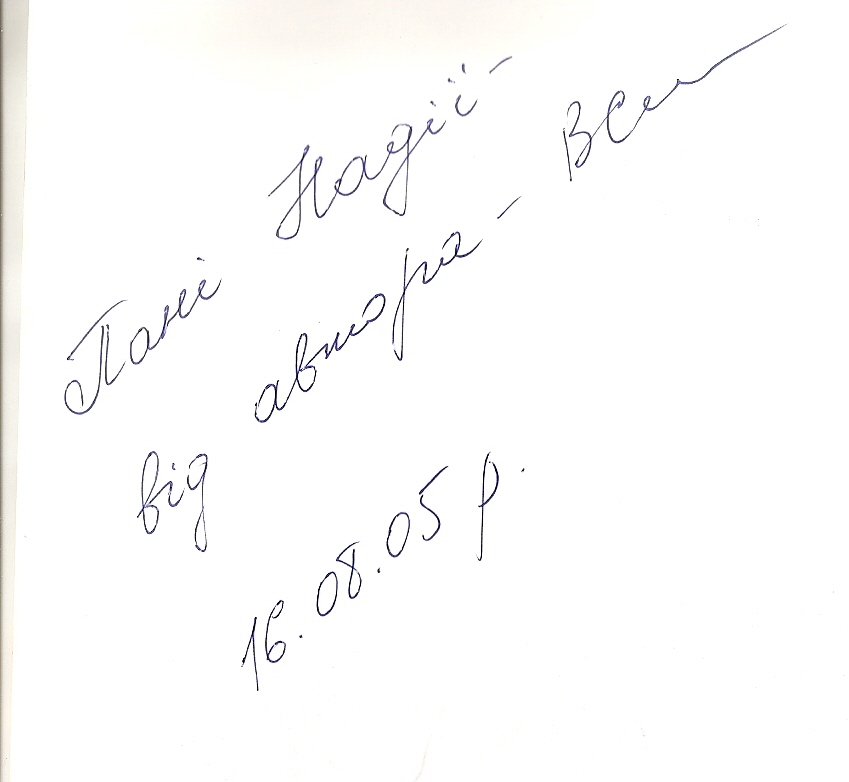 Пані Надії -
від автора -
16.08.05 р.